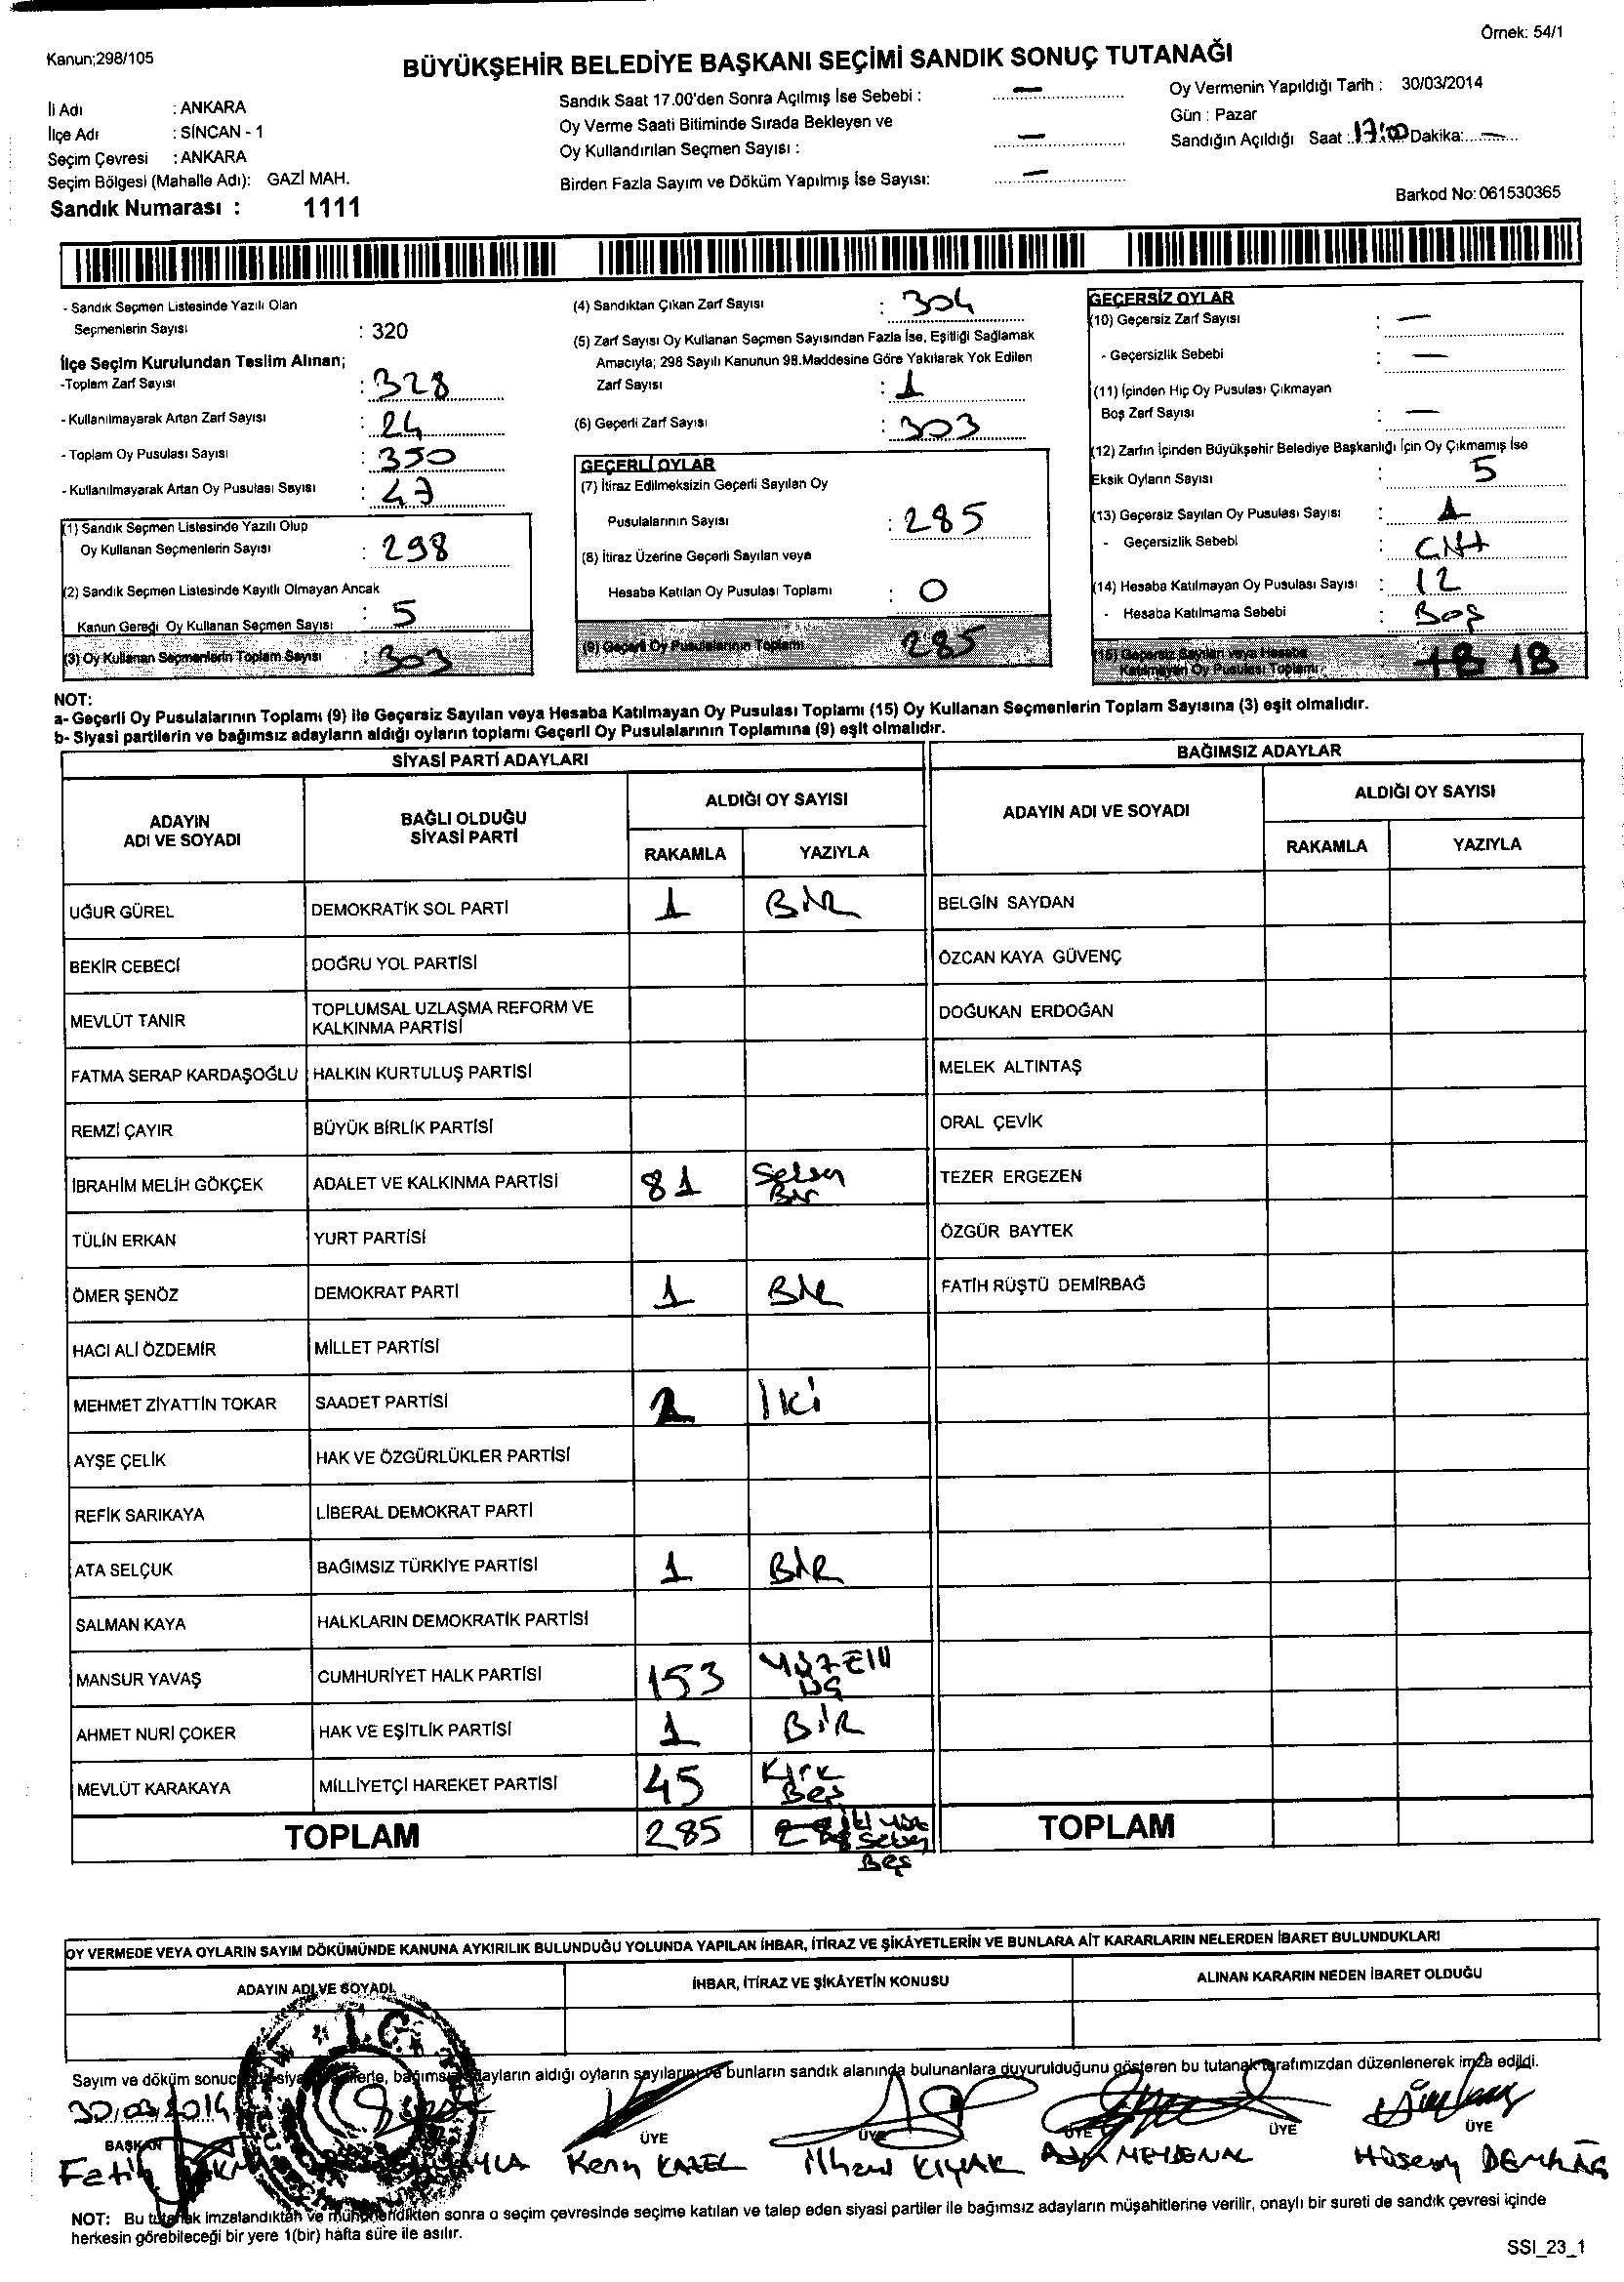 Örnek: 54/1
Kanun;298/105
BÜYÜKŞEHİR BELEDİYE BAŞKANI SEÇİMİ SANDIK SONUÇ TUTANAĞI
İli Adı : ANKARA
İlçe Adı : SİNCAN - 1
Seçim Çevresi : ANKARA
Seçim Bölgesi (Mahalle Adı): GAZİ MAH.
Sandık Numarası : 1111
Sandık Saat 17.00'den Sonra Açılmış İse Sebebi : —
Oy Verme Saati Bitiminde Sırada Bekleyen ve
Oy Kullandırılan Seçmen Sayısı : —
Birden Fazla Sayım ve Döküm Yapılmış İse Sayısı: —
Oy Vermenin Yapıldığı Tarih : 30/03/2014
Gün : Pazar
Sandığın Açıldığı Saat : 17:00 Dakika: —
Barkod No: 061530365
- Sandık Seçmen Listesinde Yazılı Olan
Seçmenlerin Sayısı : 320
İlçe Seçim Kurulundan Teslim Alınan;
-Toplam Zarf Sayısı : 328
- Kullanılmayarak Artan Zarf Sayısı : 24
- Toplam Oy Pusulası Sayısı : 350
- Kullanılmayarak Artan Oy Pusulası Sayısı : 47
(1) Sandık Seçmen Listesinde Yazılı Olup
Oy Kullanan Seçmenlerin Sayısı : 298
(2) Sandık Seçmen Listesinde Kayıtlı Olmayan Ancak
Kanun Gereği Oy Kullanan Seçmen Sayısı : 5
(3) Oy Kullanan Seçmenlerin Toplam Sayısı : 303
(4) Sandıktan Çıkan Zarf Sayısı : 304
(5) Zarf Sayısı Oy Kullanan Seçmen Sayısından Fazla İse, Eşitliği Sağlamak
Amacıyla; 298 Sayılı Kanunun 98.Maddesine Göre Yakılarak Yok Edilen
Zarf Sayısı : 1
(6) Geçerli Zarf Sayısı : 303
GEÇERLİ OYLAR
(7) İtiraz Edilmeksizin Geçerli Sayılan Oy
Pusulalarının Sayısı : 285
(8) İtiraz Üzerine Geçerli Sayılan veya
Hesaba Katılan Oy Pusulası Toplamı : 0
(9) Geçerli Oy Pusulalarının Toplamı 285
GEÇERSİZ OYLAR
(10) Geçersiz Zarf Sayısı : —
- Geçersizlik Sebebi : —
(11) İçinden Hiç Oy Pusulası Çıkmayan
Boş Zarf Sayısı : —
(12) Zarfın İçinden Büyükşehir Belediye Başkanlığı İçin Oy Çıkmamış İse
Eksik Oyların Sayısı : 5
(13) Geçersiz Sayılan Oy Pusulası Sayısı : 1
- Geçersizlik Sebebi :
(14) Hesaba Katılmayan Oy Pusulası Sayısı : 12
- Hesaba Katılmama Sebebi : Boş
(15) Geçersiz Sayılan veya Hesaba
Katılmayan Oy Pusulası Toplamı : 18 18
NOT:
a- Geçerli Oy Pusulalarının Toplamı (9) ile Geçersiz Sayılan veya Hesaba Katılmayan Oy Pusulası Toplamı (15) Oy Kullanan Seçmenlerin Toplam Sayısına (3) eşit olmalıdır.
b- Siyasi partilerin ve bağımsız adayların aldığı oyların toplamı Geçerli Oy Pusulalarının Toplamına (9) eşit olmalıdır.
SİYASİ PARTİ ADAYLARI
ADAYIN
ADI VE SOYADI
BAĞLI OLDUĞU
SİYASİ PARTİ
ALDIĞI OY SAYISI
RAKAMLA YAZIYLA
UĞUR GÜREL DEMOKRATİK SOL PARTİ 1 BİR
BEKİR CEBECİ DOĞRU YOL PARTİSİ
MEVLÜT TANIR TOPLUMSAL UZLAŞMA REFORM VE
KALKINMA PARTİSİ
FATMA SERAP KARDAŞOĞLU HALKIN KURTULUŞ PARTİSİ
REMZİ ÇAYIR BÜYÜK BİRLİK PARTİSİ
İBRAHİM MELİH GÖKÇEK ADALET VE KALKINMA PARTİSİ 81 Seksen
Bir
TÜLİN ERKAN YURT PARTİSİ
ÖMER ŞENÖZ DEMOKRAT PARTİ 1 BİR
HACI ALİ ÖZDEMİR MİLLET PARTİSİ
MEHMET ZİYATTİN TOKAR SAADET PARTİSİ 2 İki
AYŞE ÇELİK HAK VE ÖZGÜRLÜKLER PARTİSİ
REFİK SARIKAYA LİBERAL DEMOKRAT PARTİ
ATA SELÇUK BAĞIMSIZ TÜRKİYE PARTİSİ 1 BİR
SALMAN KAYA HALKLARIN DEMOKRATİK PARTİSİ
MANSUR YAVAŞ CUMHURİYET HALK PARTİSİ 153 YÜZELLİ
ÜÇ
AHMET NURİ ÇOKER HAK VE EŞİTLİK PARTİSİ 1 BİR
MEVLÜT KARAKAYA MİLLİYETÇİ HAREKET PARTİSİ 45 Kırk
Beş
TOPLAM 285 İki Yüz
Seksen
Beş
BAĞIMSIZ ADAYLAR
ADAYIN ADI VE SOYADI
ALDIĞI OY SAYISI
RAKAMLA YAZIYLA
BELGİN SAYDAN
ÖZCAN KAYA GÜVENÇ
DOĞUKAN ERDOĞAN
MELEK ALTINTAŞ
ORAL ÇEVİK
TEZER ERGEZEN
ÖZGÜR BAYTEK
FATİH RÜŞTÜ DEMİRBAĞ
TOPLAM
OY VERMEDE VEYA OYLARIN SAYIM DÖKÜMÜNDE KANUNA AYKIRILIK BULUNDUĞU YOLUNDA YAPILAN İHBAR, İTİRAZ VE ŞİKÂYETLERİN VE BUNLARA AİT KARARLARIN NELERDEN İBARET BULUNDUKLARI
ADAYIN ADI VE SOYADI
İHBAR, İTİRAZ VE ŞİKÂYETİN KONUSU
ALINAN KARARIN NEDEN İBARET OLDUĞU
T.C.
Sayım ve döküm aldığı oyların sayılarını ve bunların sandık alanında bulunanlara duyurulduğunu gösteren bu tutanak tarafımızdan düzenlenerek imza edildi.
30/03/2014
BAŞKAN ÜYE ÜYE ÜYE ÜYE ÜYE
Fatih KAZEL İlhan KIYAK Hüseyin
NOT: Bu tutanak imzalandıktan ve mühürlendikten sonra o seçim çevresinde seçime katılan ve talep eden siyasi partiler ile bağımsız adayların müşahitlerine verilir, onaylı bir sureti de sandık çevresi içinde
herkesin görebileceği bir yere 1(bir) hafta süre ile asılır.
SSI_23_1